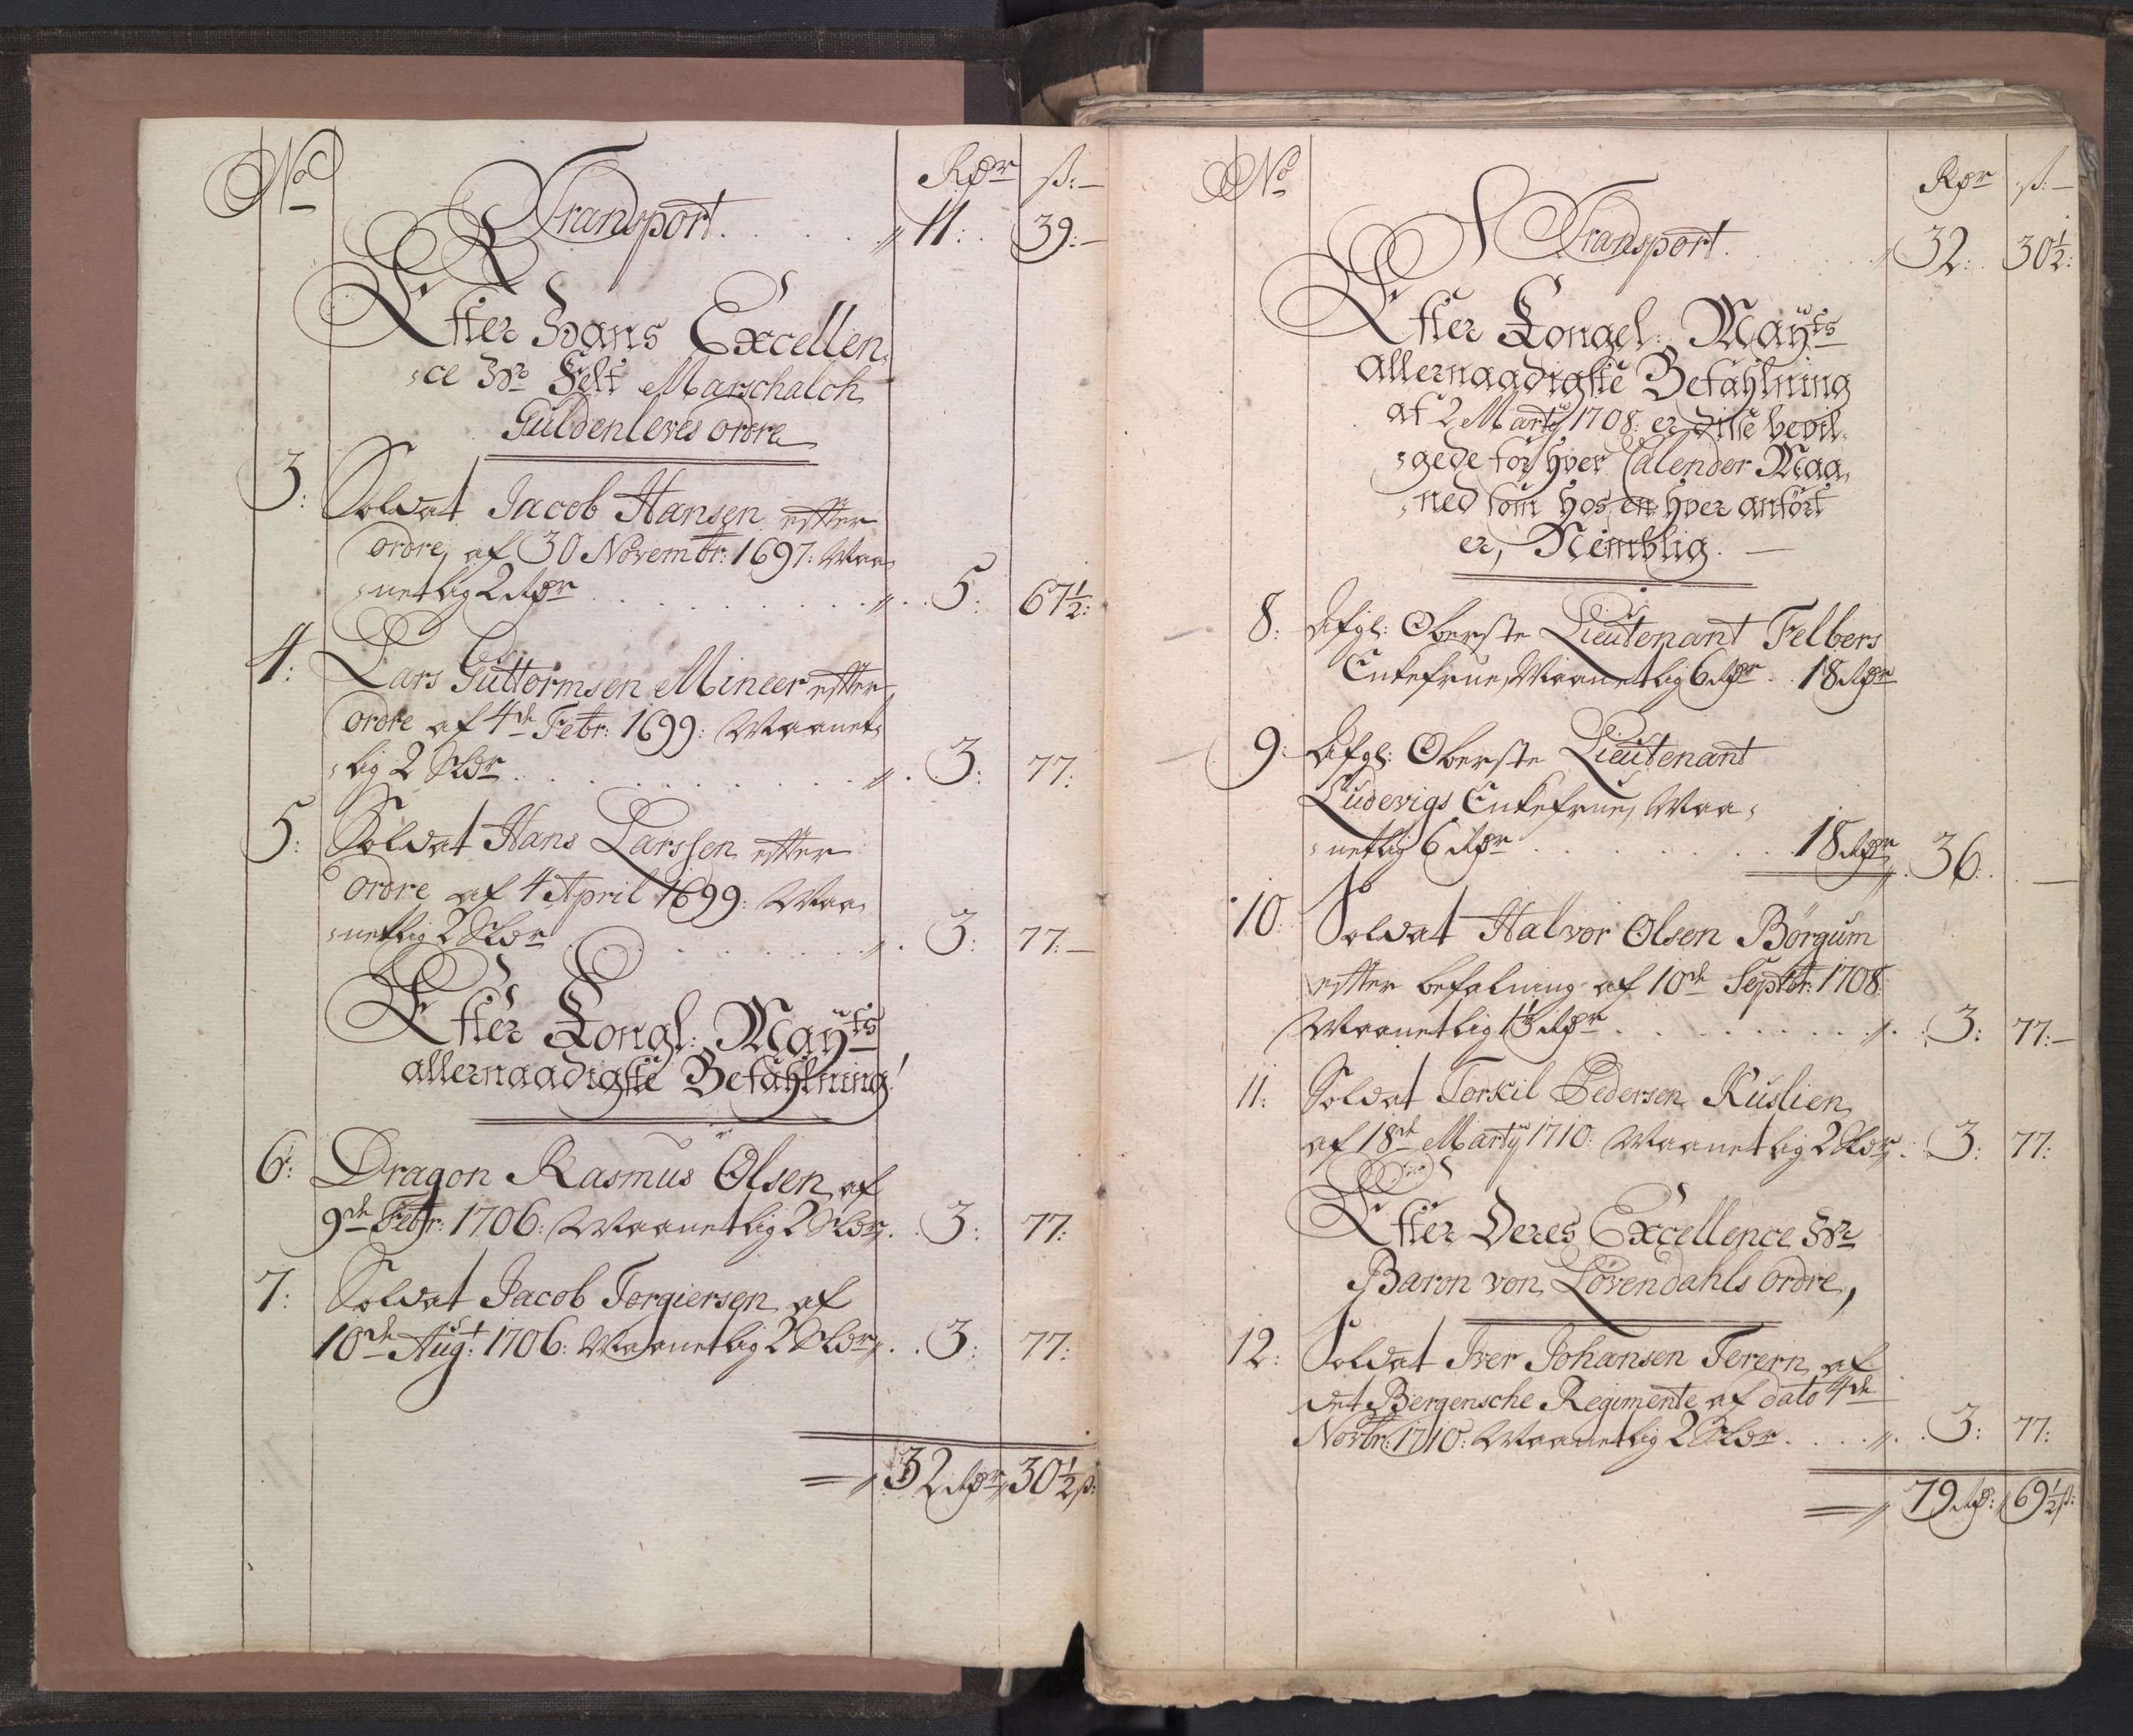 No
Rdr ß:
Transport. 11: 39:
Efter Hans Excellen,
,ce Hr Felt Marschalch
Güldenlewes ordre
3: Soldat Jacob Hansen effter
ordre, af 30 Novembr: 1697: Maa,
,netlig 2 Rdr 5: 67½:
4: Lars Güttormsen Mineer effter
ordre af 4de Febr: 1699: Maanet,
,lig 2 Sldr 3: 77:
5: Soldat Hans Larssen effter
ordre af 4 April 1699: Maa,
,netlig 2 Sldr 3: 77:
Efter Kongl: Mayts
allernaadigste Befahlning
6: Dragon Rasmus Olsen, af
9de Febr: 1706: Maanetlig 2 Sldr 3: 77:
7: Soldat Jacob Torgiersen af
10de Augst: 1706: Maanetlig 2 Sldr 3: 77:
32 Rdr 30½ ß:
No
Rdr ß:
Transport. 32: 30½:
Efter Kongel: Mayts
allernaadigste Befahlning
af 2 Marty 1708: er disse bevil,
,gede for hver Calender Maa,
,ned som hos en hver anført
er, Nemblig.
8: Afgl: Oberste Lieutenant Felbers
Enkefrue, Maanetlig 6 Rdr. 18 Rdr
9: Afgl: Oberste Lieutenant
Ludewigs Enkefrue, Maa,
,netlig 6 Rdr 18 Rdr 36:
10: Soldat Halvor Olsen Börgum
effter befalning af 10de Septbr: 1708
Maanetlig 1⅓ Rdr 3: 77:
11: Soldat Torkil Pedersen Kuslien
af 18de Marty 1710: Maanetlig 2 Sldr 3: 77:
Efter Deres Excellence Hr
Baron von Lövendahls ordre,
12: Soldat Iver Johansen Ferern af
det Bergensche Regimente af dato 4de
Novbr: 1710: Maanetlig 2 Sldr 3: 77:
79 Rd: 69½ ß: